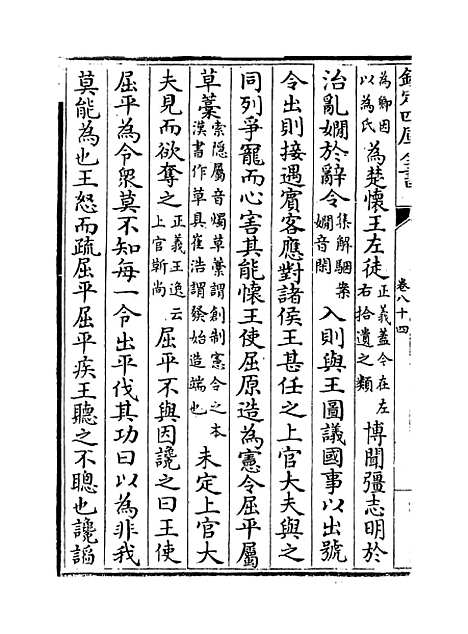 欽定四庫全書
卷八十四
為卿因以為氏為楚懷王左徒正義蓋今在左右拾遺之類博聞彊志明於
治亂嫺於辭令集解駰案嫺音閑入則與王圖議國事以出號
令出則接遇賓客應對諸侯王甚任之上官大夫與之
同列爭寵而心害其能懷王使屈原造為憲令屈平屬
草藁索隱屬音燭草藁謂創制憲令之本漢書作草具崔浩謂發始造端也未定上官大
夫見而欲奪之正義王逸云上官靳尚屈平不與因讒之曰王使
屈平為令衆莫不知每一令出平伐其功曰以為非我
莫能為也王怒而疏屈平屈平疾王聽之不聰也讒諂